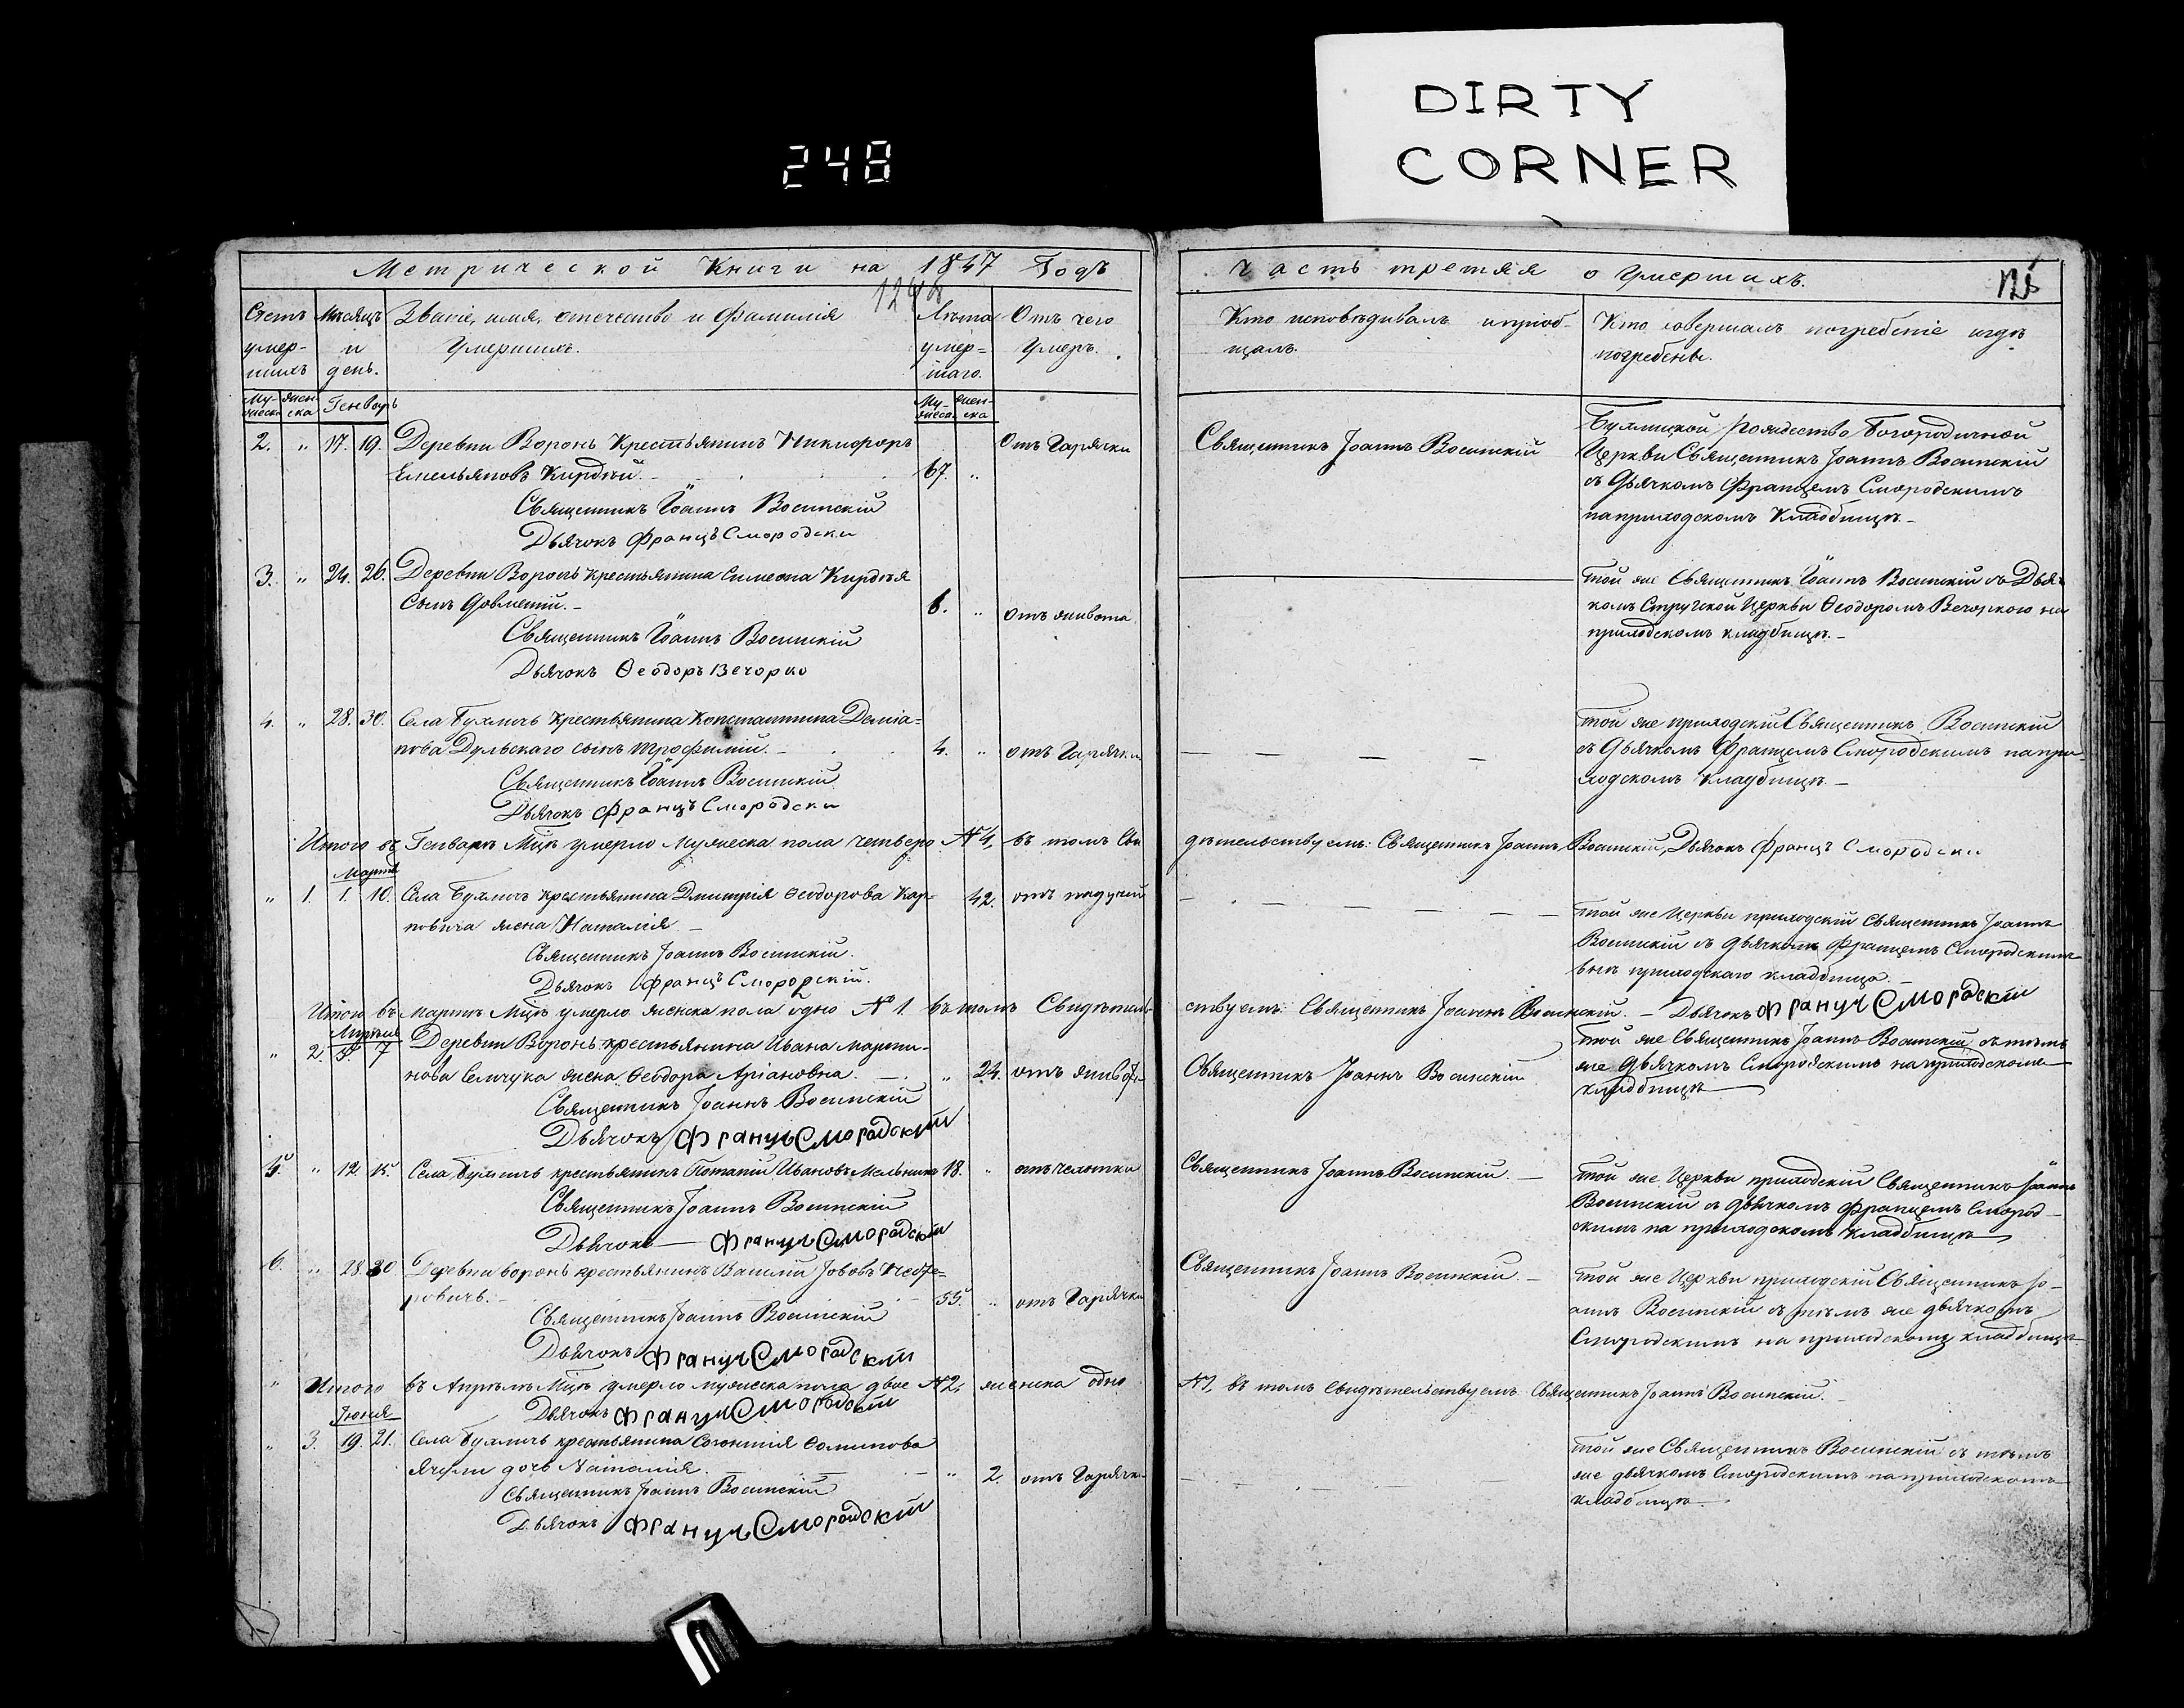 DIRTY
CORNER
248
Метрической Книги на 1847 Годъ
Часть третяя о Умершихъ.
Счетъ умер-шихъ
Мѣсяцъ и день.
Званіе, имя, отечество и Фамилія
Умершихъ.
Лѣта умер-шаго.
Отъ чего
умеръ.
Кто исповѣдивалъ и пріоб-
щалъ.
Кто совершалъ погребеніе и гдѣ
погребены.
Му-жеска
жен-ска
Генварь
Му-жеска
жен-ска
2. " 17. 19. Деревни Воронь Крестьянинъ Никифоръ
Емельяновъ Кирдѣй. 67. "
Отъ Гарячки
Священникъ Іоаннъ Восинскій
Дьячокъ Францъ Смородски
Священникъ Іоаннъ Восинскій
Рождество Богородичной
Церкви Священникъ Іоаннъ Восинскій
съ Дьячкомъ Францемъ Смородскимъ
на приходскомъ Кладбищѣ.
3. " 24. 26. Деревни Воронь Крестьянина Симеона Кирдѣя
Сынъ 6. " Отъ живота
Священникъ Іоаннъ Восинскій
Дьячокъ Ѳеодоръ Вечорко
той же Священникъ Іоаннъ Восинскій съ Дьяч-
комъ Церкви Ѳеодоромъ на
приходскомъ кладбищѣ.
4. " 28. 30. Села Крестьянина Константина Деміа-
нова Дульскаго сынъ Трофимій. 4. " отъ Гарячки
Священникъ Іоаннъ Восинскій
Дьячокъ Францъ Смородски
той же приходскій Священникъ Восинскій
съ Дьячкомъ Францемъ Смородскимъ на при-
ходскомъ Кладбищѣ.
Итого въ Генварѣ Мцѣ умерло Мужеска пола четверо № 4, въ томъ Сви
дѣтельствуемъ: Священникъ Іоаннъ Восинскій, Дьячокъ Францъ Смородски
Мартъ
" 1. 1. 10. Села крестьянина Дмитрія Ѳеодорова Кар-
повича жена Наталія 42. отъ падучей
Священникъ Іоаннъ Восинскій.
Дьячокъ Францъ Смородскій.
той же Церкви приходскій Священникъ Іоаннъ
Восинскій съ дьячкомъ Францемъ Смородскимъ
приходскаго кладбища
Итого въ Мартѣ Мцѣ умерло женска пола одно № 1. въ томъ Свидѣтель-
ствуемъ: Священникъ Іоаннъ Восинскій. Дьячокъ Францъ Смородскій
2. 5. 7 Деревни Воронь крестьянина Ивана Марти-
нова жена Ѳеодора Аріановна. " 24. отъ живота
Священникъ Іоаннъ Восинскій
Дьячокъ Францъ Смородскій
Священникъ Іоаннъ Восинскій
той же Священникъ Іоаннъ Восинскій съ тѣмъ
же Дьячкомъ Смородскимъ на приходскомъ
кладбищѣ
5. " 12. 15. Села крестьянинъ Потапій Ивановъ Мельникъ 18. "
Священникъ Іоаннъ Восинскій
Дьячокъ Францъ Смородскій
Священникъ Іоаннъ Восинскій.
той же Церкви приходскій Священникъ Іоаннъ
Восинскій съ дьячкомъ Францемъ Смород-
скимъ на приходскомъ кладбищѣ
6. " 28. 30 Деревни Воронь крестьянинъ Василій Іововъ
55. " отъ Гарячки
Священникъ Іоаннъ Восинскій
Дьячокъ Францъ Смородскій
Священникъ Іоаннъ Восинскій
той же Церкви приходскій Священникъ Іо-
аннъ Восинскій съ тѣмъ же дьячкомъ
Смородскимъ на приходскомъ кладбищѣ
Итого въ Апрѣлѣ Мцѣ умерло мужеска пола двое № 2, женска одно
№ 1, въ томъ свидѣтельствуемъ Священникъ Іоаннъ Восинскій.
Дьячокъ Францъ Смородскій
Іюня
" 3. 19. 21. Села крестьянина
дочь Наталія. " 2. отъ Гарячки
Священникъ Іоаннъ Восинскій
Дьячокъ Францъ Смородскій
той же Священникъ Восинскій съ тѣмъ
же дьячкомъ Смородскимъ на приходскомъ
кладбищѣ.